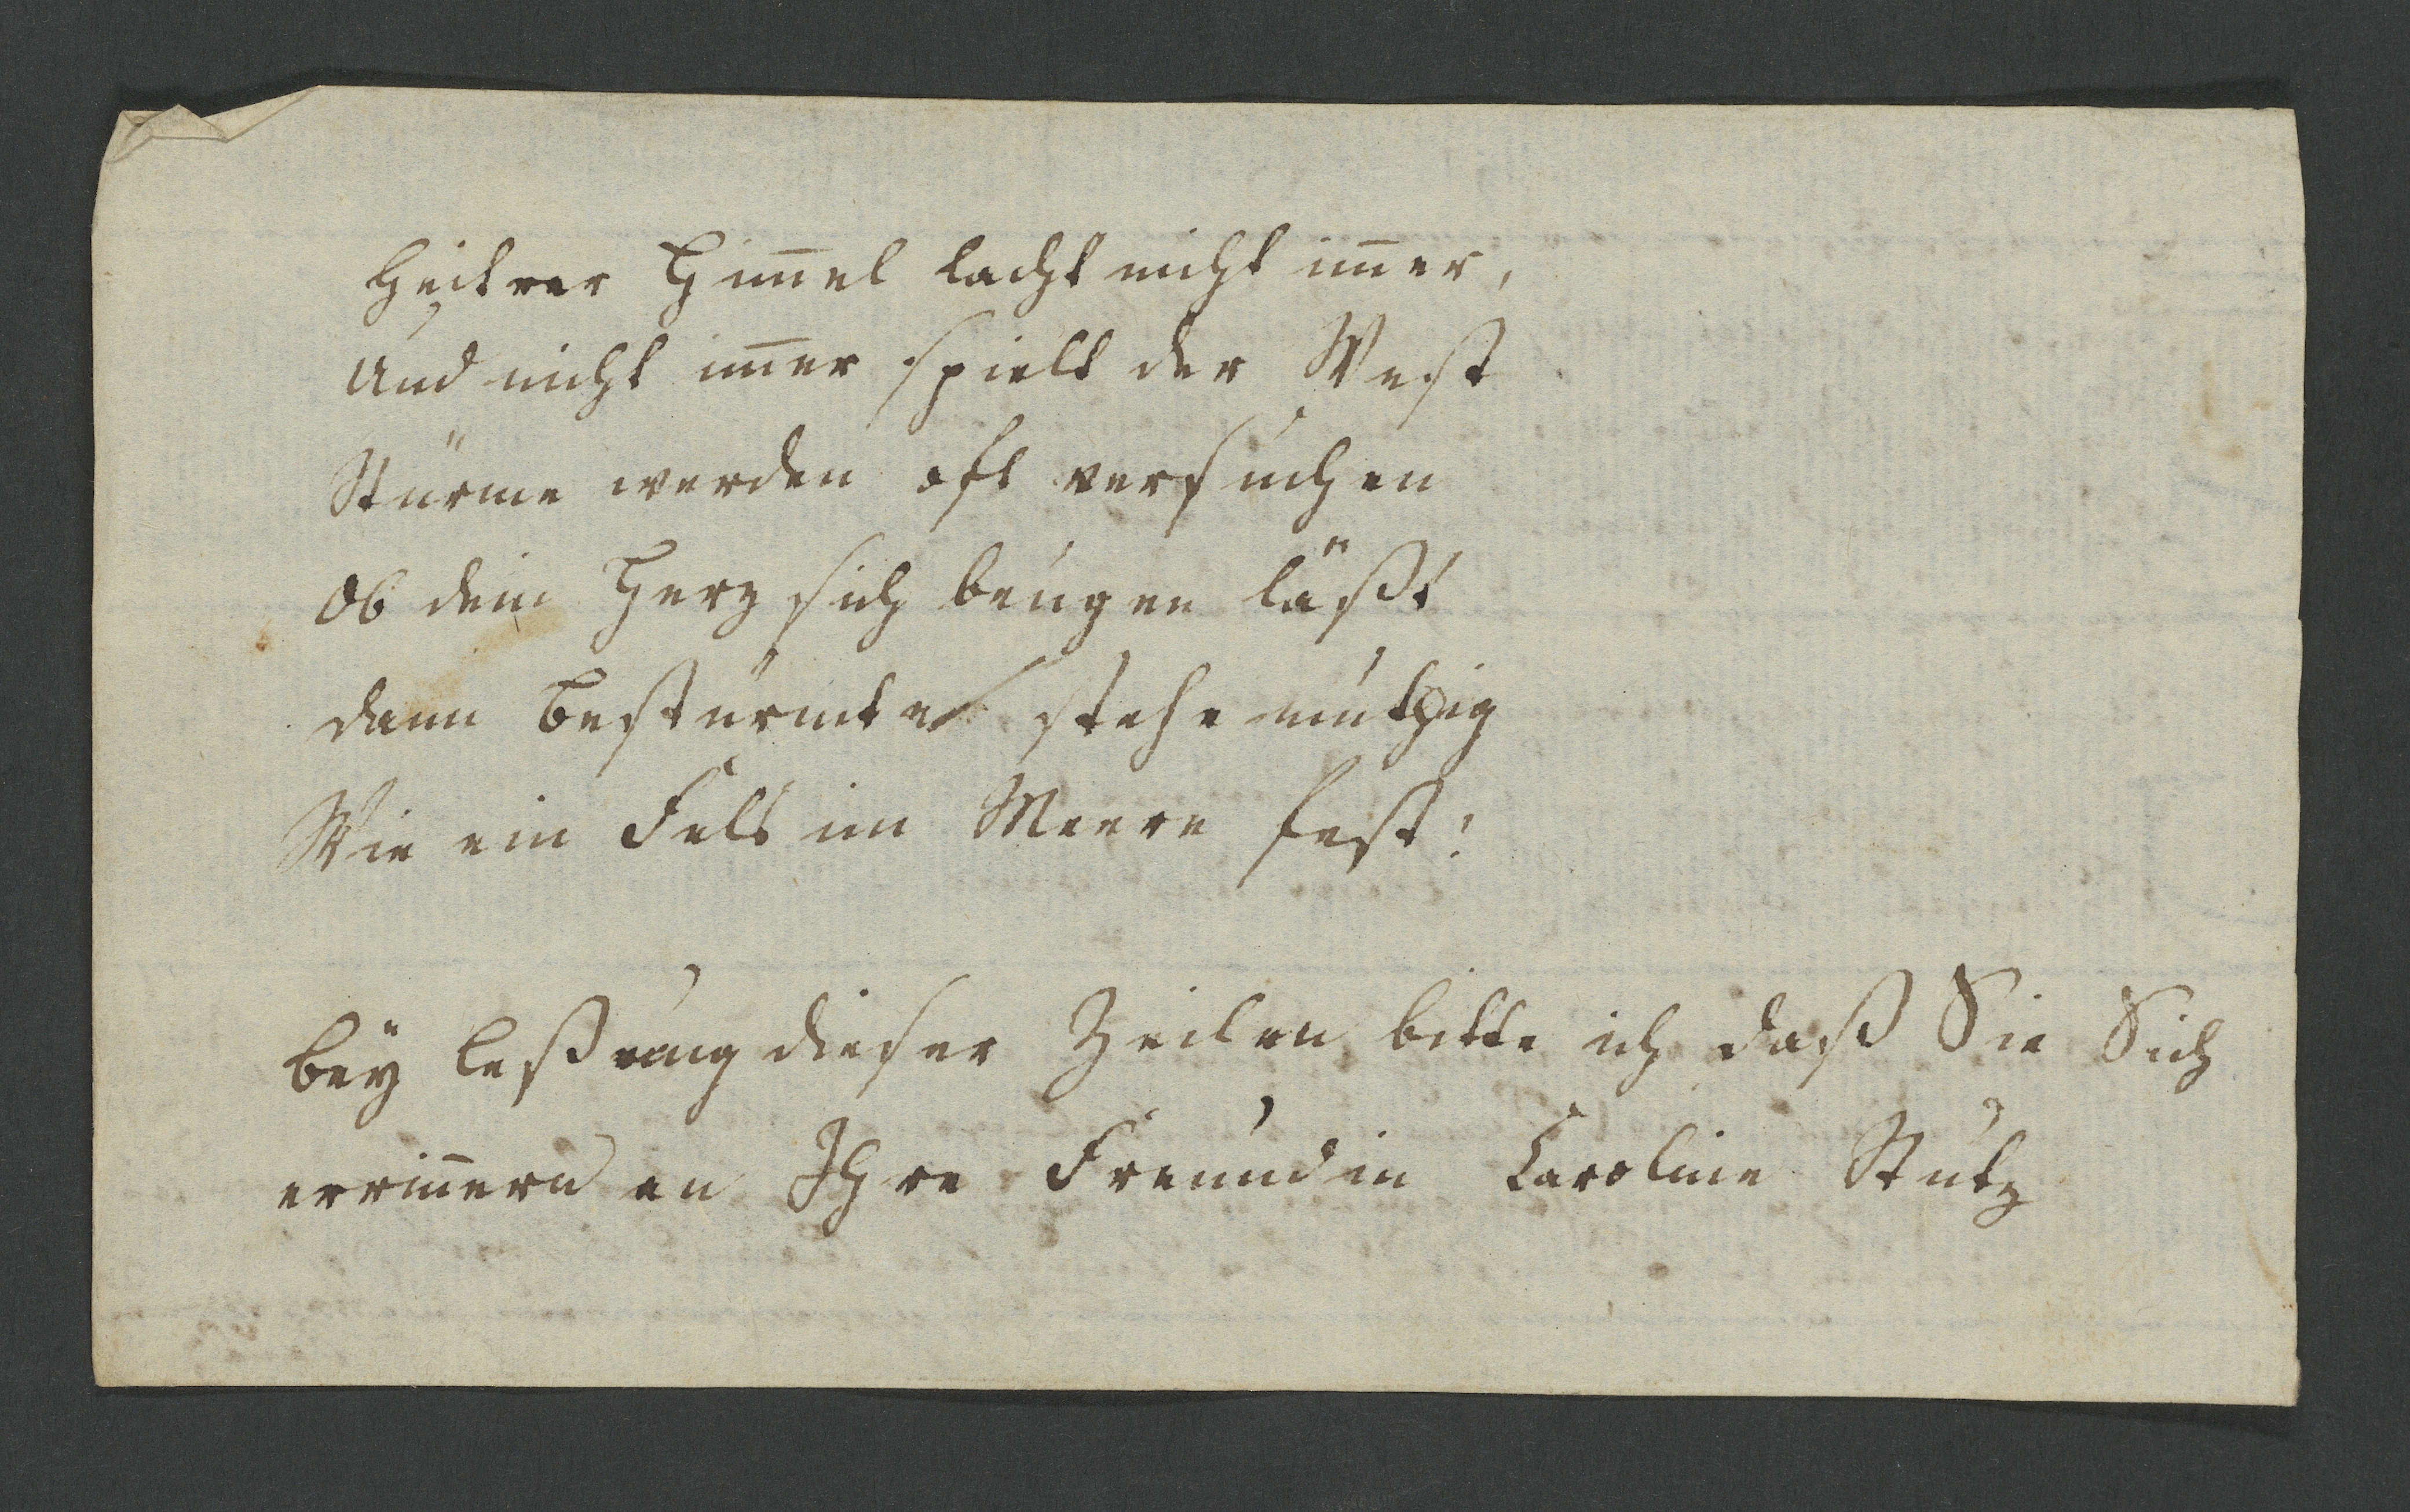 Heitrer Him̅el lacht nicht im̅er,
Und nicht im̅er spielt der West
Stürme werden oft versuchen
Ob dein Herz sich beugen läßt
dann Bestürmte stehe muthig
Wie ein Fels im Meere fest!
bey Leßung dieser Zeilen bitte ich daß Sie Sich
errin̅ern an Ihre Freundin Caroline Stutz